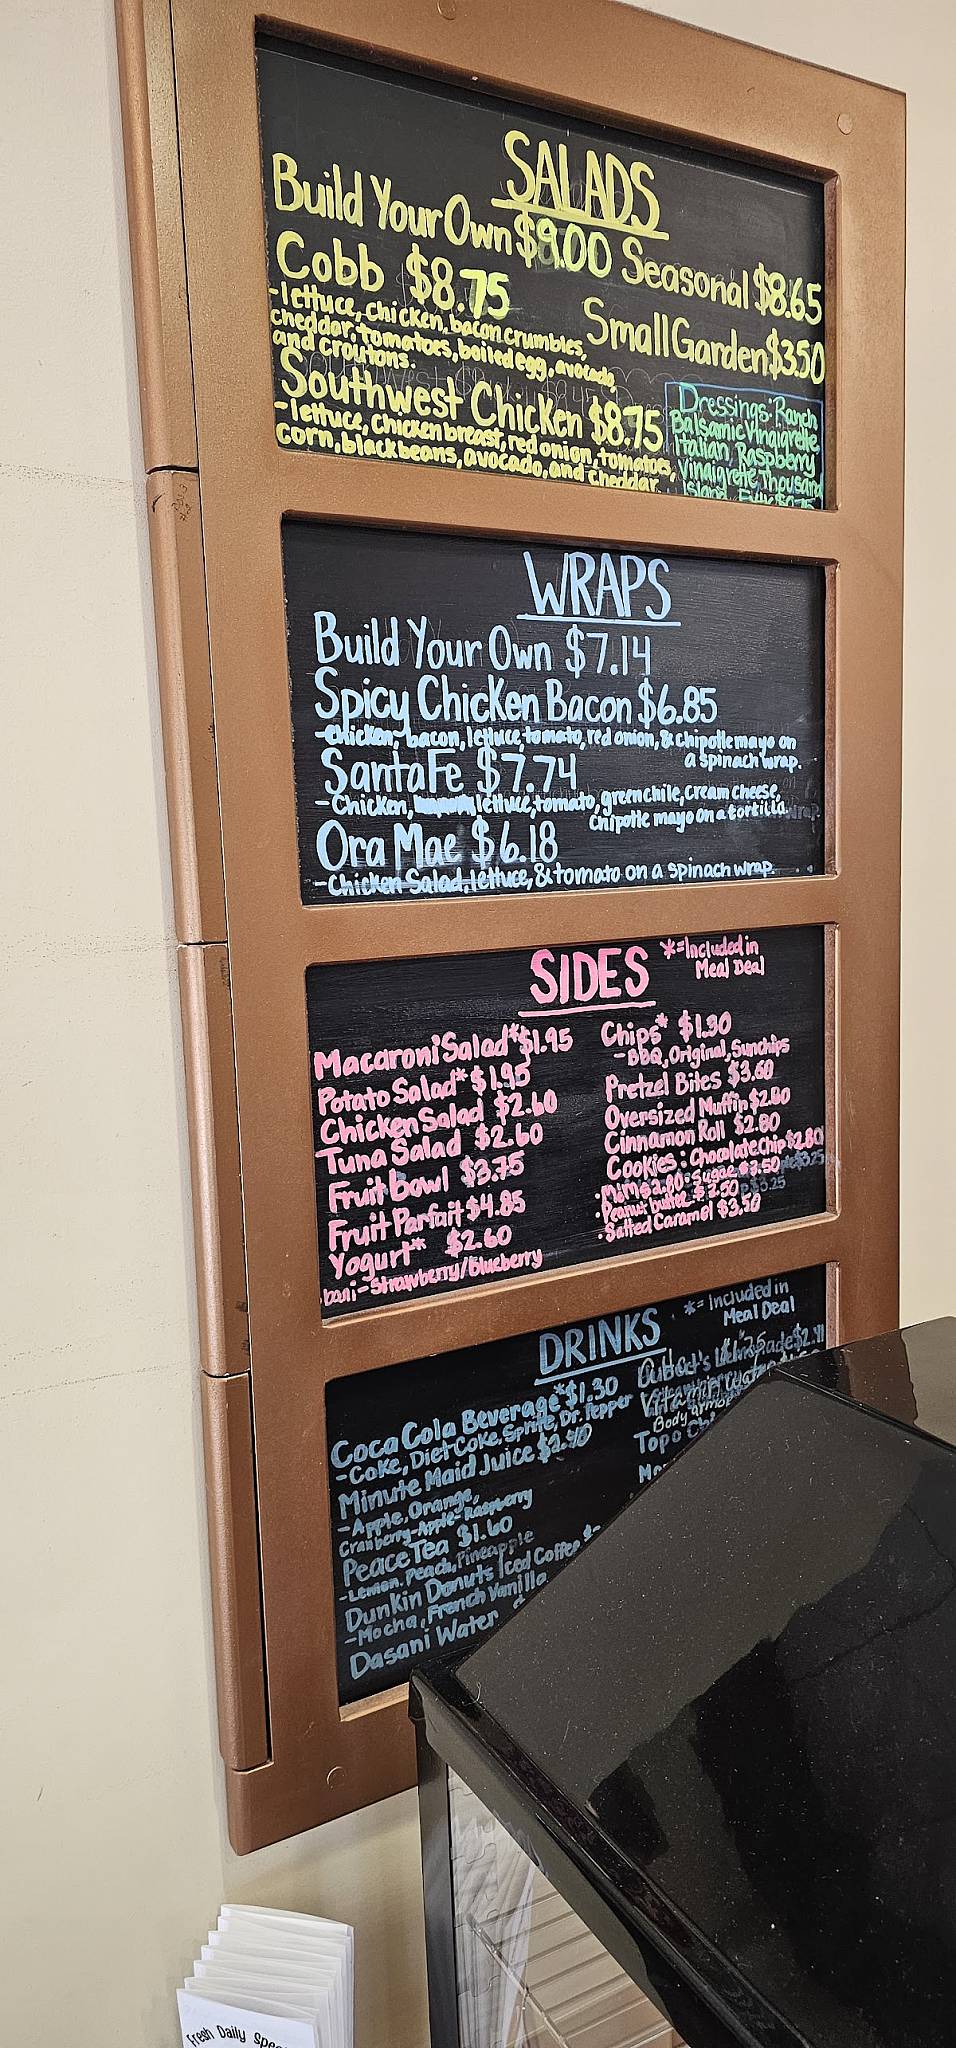 SALADS
Build Your Own $9.00
Seasonal $8.65
Cobb $8.75
-lettuce, chicken, bacon crumbles,
cheddar, tomatoes, boiled egg, avocado,
and croutons.
Small Garden $3.50
Southwest Chicken $8.75
-lettuce, chicken breast, red onion, tomatoes,
corn, black beans, avocado, and cheddar.
Dressings: Ranch
Balsamic Vinaigrette
Italian, Raspberry
Vinaigrette, Thousand
Island
WRAPS
Build Your Own $7.14
Spicy Chicken Bacon $6.85
-chicken, bacon, lettuce, tomato, red onion, & chipotle mayo on
a spinach wrap.
Santa Fe $7.74
-Chicken, lettuce, tomato, green chile, cream cheese,
chipotle mayo on a tortilla
Ora Mae $6.18
-Chicken Salad, lettuce, & tomato on a spinach wrap.
SIDES
*=Included in
Meal Deal
Macaroni Salad* $1.95
Potato Salad* $1.95
Chicken Salad $2.60
Tuna Salad $2.60
Fruit Bowl $3.75
Fruit Parfait $4.85
Yogurt* $2.60
-Strawberry/Blueberry
Chips* $1.30
-BBQ, Original, Sunchips
Pretzel Bites $3.60
Oversized Muffin $2.80
Cinnamon Roll $2.80
Cookies: Chocolate Chip $2.80
• M&M $2.80 • Sugar $3.50
• Peanut butter $3.50
• Salted Caramel $3.50
DRINKS
*= Included in
Meal Deal
Coca Cola Beverage* $1.30
-Coke, Diet Coke, Sprite, Dr. Pepper
Minute Maid Juice
-Apple, Orange,
Cranberry-Apple-Raspberry
Peace Tea $1.60
-Lemon, Peach, Pineapple
Dunkin Donuts Iced Coffee
-Mocha, French Vanilla
Dasani Water
Body Armor
Topo
Fresh Daily